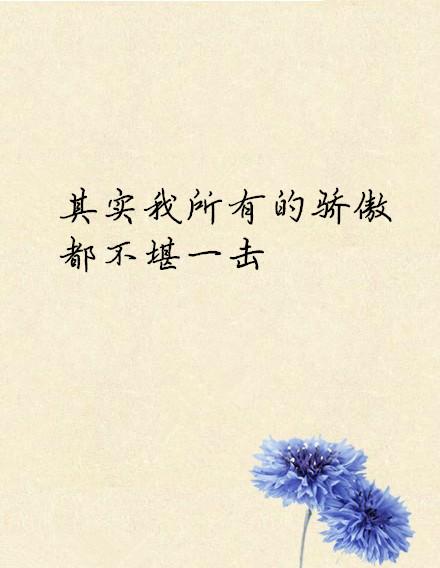 其实我所有的骄傲
都不堪一击